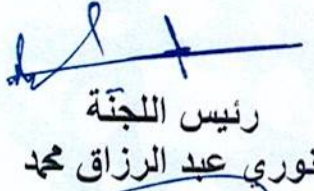 رئيس اللجنة
نوري عبد الرزاق محمد